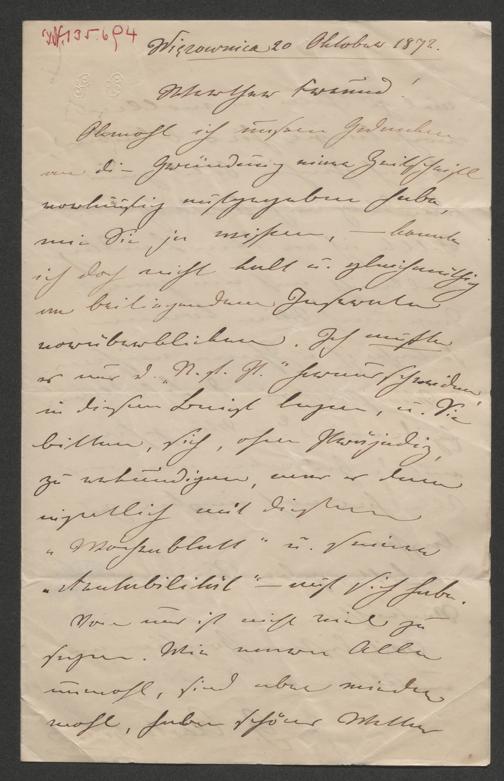 N. 135.694
Wiązownica 20 Oktober 1872.
Werther Freund!
Obwohl ich unsern Gedanken
an die Gründung einer Zeitschrift
vorläufig aufgegeben habe,
wie Sie ja wissen, – konnte
ich doch nicht kalt u. gleichgiltig
am beiliegenden Inserate
vorüberblicken. Ich mußte
es aus d. „N. fr. Pr.“ herausschneiden
in diesen Brief legen, u. Sie
bitten, sich, ohne
zu erkundigen, was es denn
eigentlich mit diesem
„Wochenblatt“ u. seiner
„Rentabilität“ – auf sich habe.
Von uns ist nicht viel zu
sagen. Wir waren Alle
unwohl, sind aber wieder
wohl, haben schönes Wetter